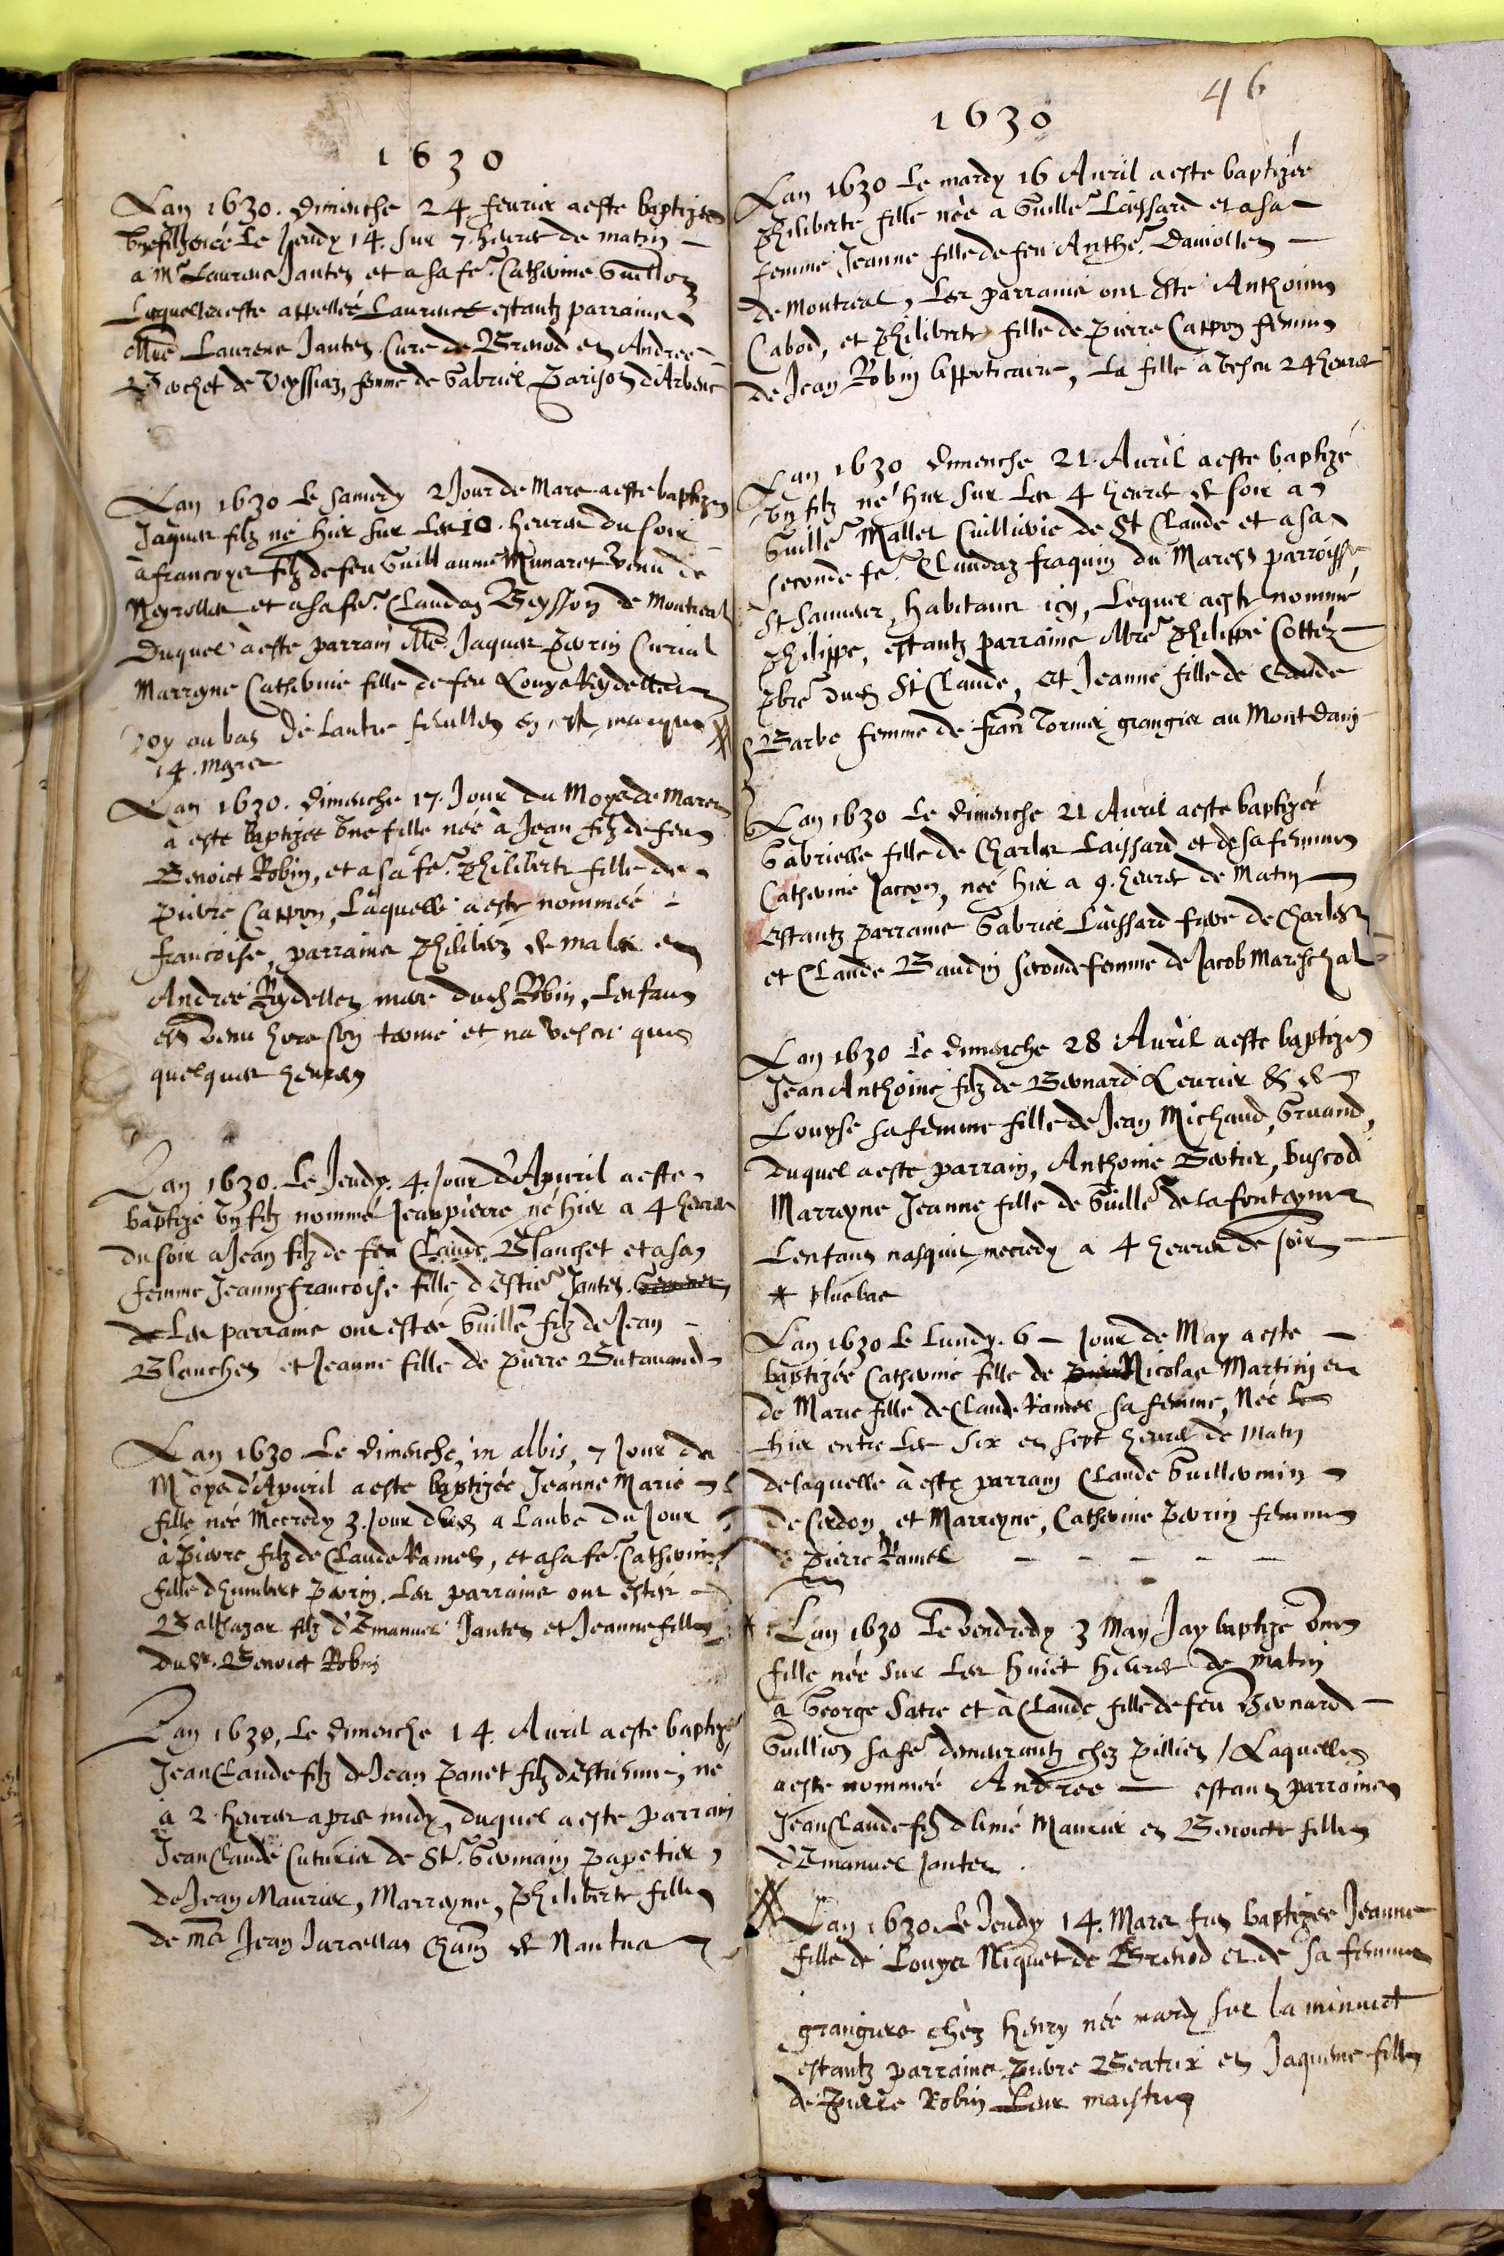 1630
Lan 1630. dimenche 24 feurier a este baptizee
une fille née Le Jeudy 14. sur 7. heures de matin
a Mr Laurens Jantet et a sa fe. Catherine Guillot
Laquelle a este appellée Laurence estantz parrains
Mre Laurens Jantet Curé de Brenod et Andree
Berchet de Veyssiaz, femme de Gabriel Parisod d'Arbent
Lan 1630 Le samedy 2 Jour de Mars a este baptizé
Jaques filz né hier sur les 10. heures du soir
à francoys filz de feu Guillaume Munaret venu de
Neyrolles et a sa fe. Claudaz Beysson de Montreal
Duquel à este parrain Mre Jaques Perrin Curial
Marreyne Catherine fille de feu Louys Reydellet
voy au bas de lautre feuillet en ceste marque
14. Mars
Lan 1630. dimenche 17. Jour du Moys de Mars
à este baptizee une fille née à Jean filz de feu
Benoict Robin, et a sa fe. Philiberte fille de
Pierre Cappon, Laquelle a este nommée
francoise, parrains Philibert de Male et
Andree Reydellet mere dud Robin, Lenfant
est venu hors son terme et na vescu que
quelques heures
Lan 1630. Le Jeudy. 4. Jour d'Apuril a este
baptizé un filz nommé Jean pierre né hier a 4 heures
du soir a Jean filz de feu Claude Blanchet et a sa
femme Jeanne francoise fille d'Estie. Jantet.
Les parrains ont estés Guille. filz de Jean
Blanchet et Jeanne fille de Pierre Butavand
Lan 1630 Le dimenche, in albis, 7 Jour du
Moys d'Apuril a este baptizée Jeanne Marie
fille née Mecredy 3. Jour dud a Laube du Jour
à Pierre filz de Claude Ramel, et a sa fe. Catherine
fille d'humbert Perrin. Les parrains ont estés
Balthazar filz d'Emanuel Jantet et Jeanne fille
du Sr. Benoict Robin
Lan 1630, Le dimenche 14. Auril a este baptizé
Jean Claude filz de Jean Panet filz d'Estienne, né
à 2 heures apres midy, duquel a este parrain
Jean Claude Cuturier de St. Germain papetier
de Jean Maurier, Marreyne, Philiberte fille
de me Jean Jarcellat Chain de Nantua
46
1630
Lan 1630 Le mardy 16 Auril a este baptizée
Philiberte fille née a Guille. Laissard et a sa
femme Jeanne fille de feu Anthe. Daviollet
de Montreal, Les parrains ont esté Anthoine
Cabod, et Philiberte fille de Pierre Cappon femme
de Jean Robin Appoticaire, La fille à vescu 24 heures
Lan 1630 dimenche 21. Auril a este baptizé
un filz né hier sur les 4 heures de soir a
Guille. Mallet de St Claude et a sa
seconde fe. Claudaz fraquin du Mareschs parroisse
St Sauveur, habitant icy, Lequel a este nommé
Philippe, estantz parrains Mre Philippe Cottéz
pbre dud St Claude, et Jeanne fille de Claude
Barbe femme de fran. Tornier grangier au Mont dain
Lan 1630 Le dimenche 21 Auril a este baptizée
Gabrielle fille de Charles Laissard et de sa femme
Catherine Jaccon, née hier a 9. heures de Matin
estantz parrains Gabriel Laissard frere de Charles
et Claude Baudin seconde femme de Jacob Mareschal
Lan 1630 Le dimenche 28 Auril a este baptizé
Jean Anthoine filz de Bernard Leurier & de
Louyse sa femme fille de Jean Michaud, Gruand,
duquel a este parrain, Anthoine Bertier, buscod
Marreyne Jeanne fille de Guille. de la fontayne
Lenfant nasquit mecredy a 4 heures de soir
* plus bas
Lan 1630 Le Lundy. 6 Jour de May a este
baptizée Catherine fille de Nicolas Martin et
de Marie fille de Claude Ramel sa femme, Née
hier entre les six et sept heures de Matin
de laquelle à este parrain Claude Guillermin
de Cerdon, et Marreyne, Catherine Perrin femme
de Pierre Ramel
* Lan 1630 Le vendredy 3 May Jay baptizé une
fille née sur les huict heures de matin
à George Satre et à Claude fille de feu Bernard
Guillion sa fe. demeurantz chez Pilliet / Laquelle
a este nommée Andree estans parrains
Jean Claude filz d'Aimé Maurier et Benoicte fille
d'Emanuel Jantet.
Lan 1630. Le Jeudy 14. Mars fut baptizee Jeanne
fille de Louys Niquet de Brenod et de sa femme
grangiers chèz henry née mardy sur la minuict
estantz parrains Pierre Beatrix et Jaqueme fille
de Pierre Robin Leur maistre